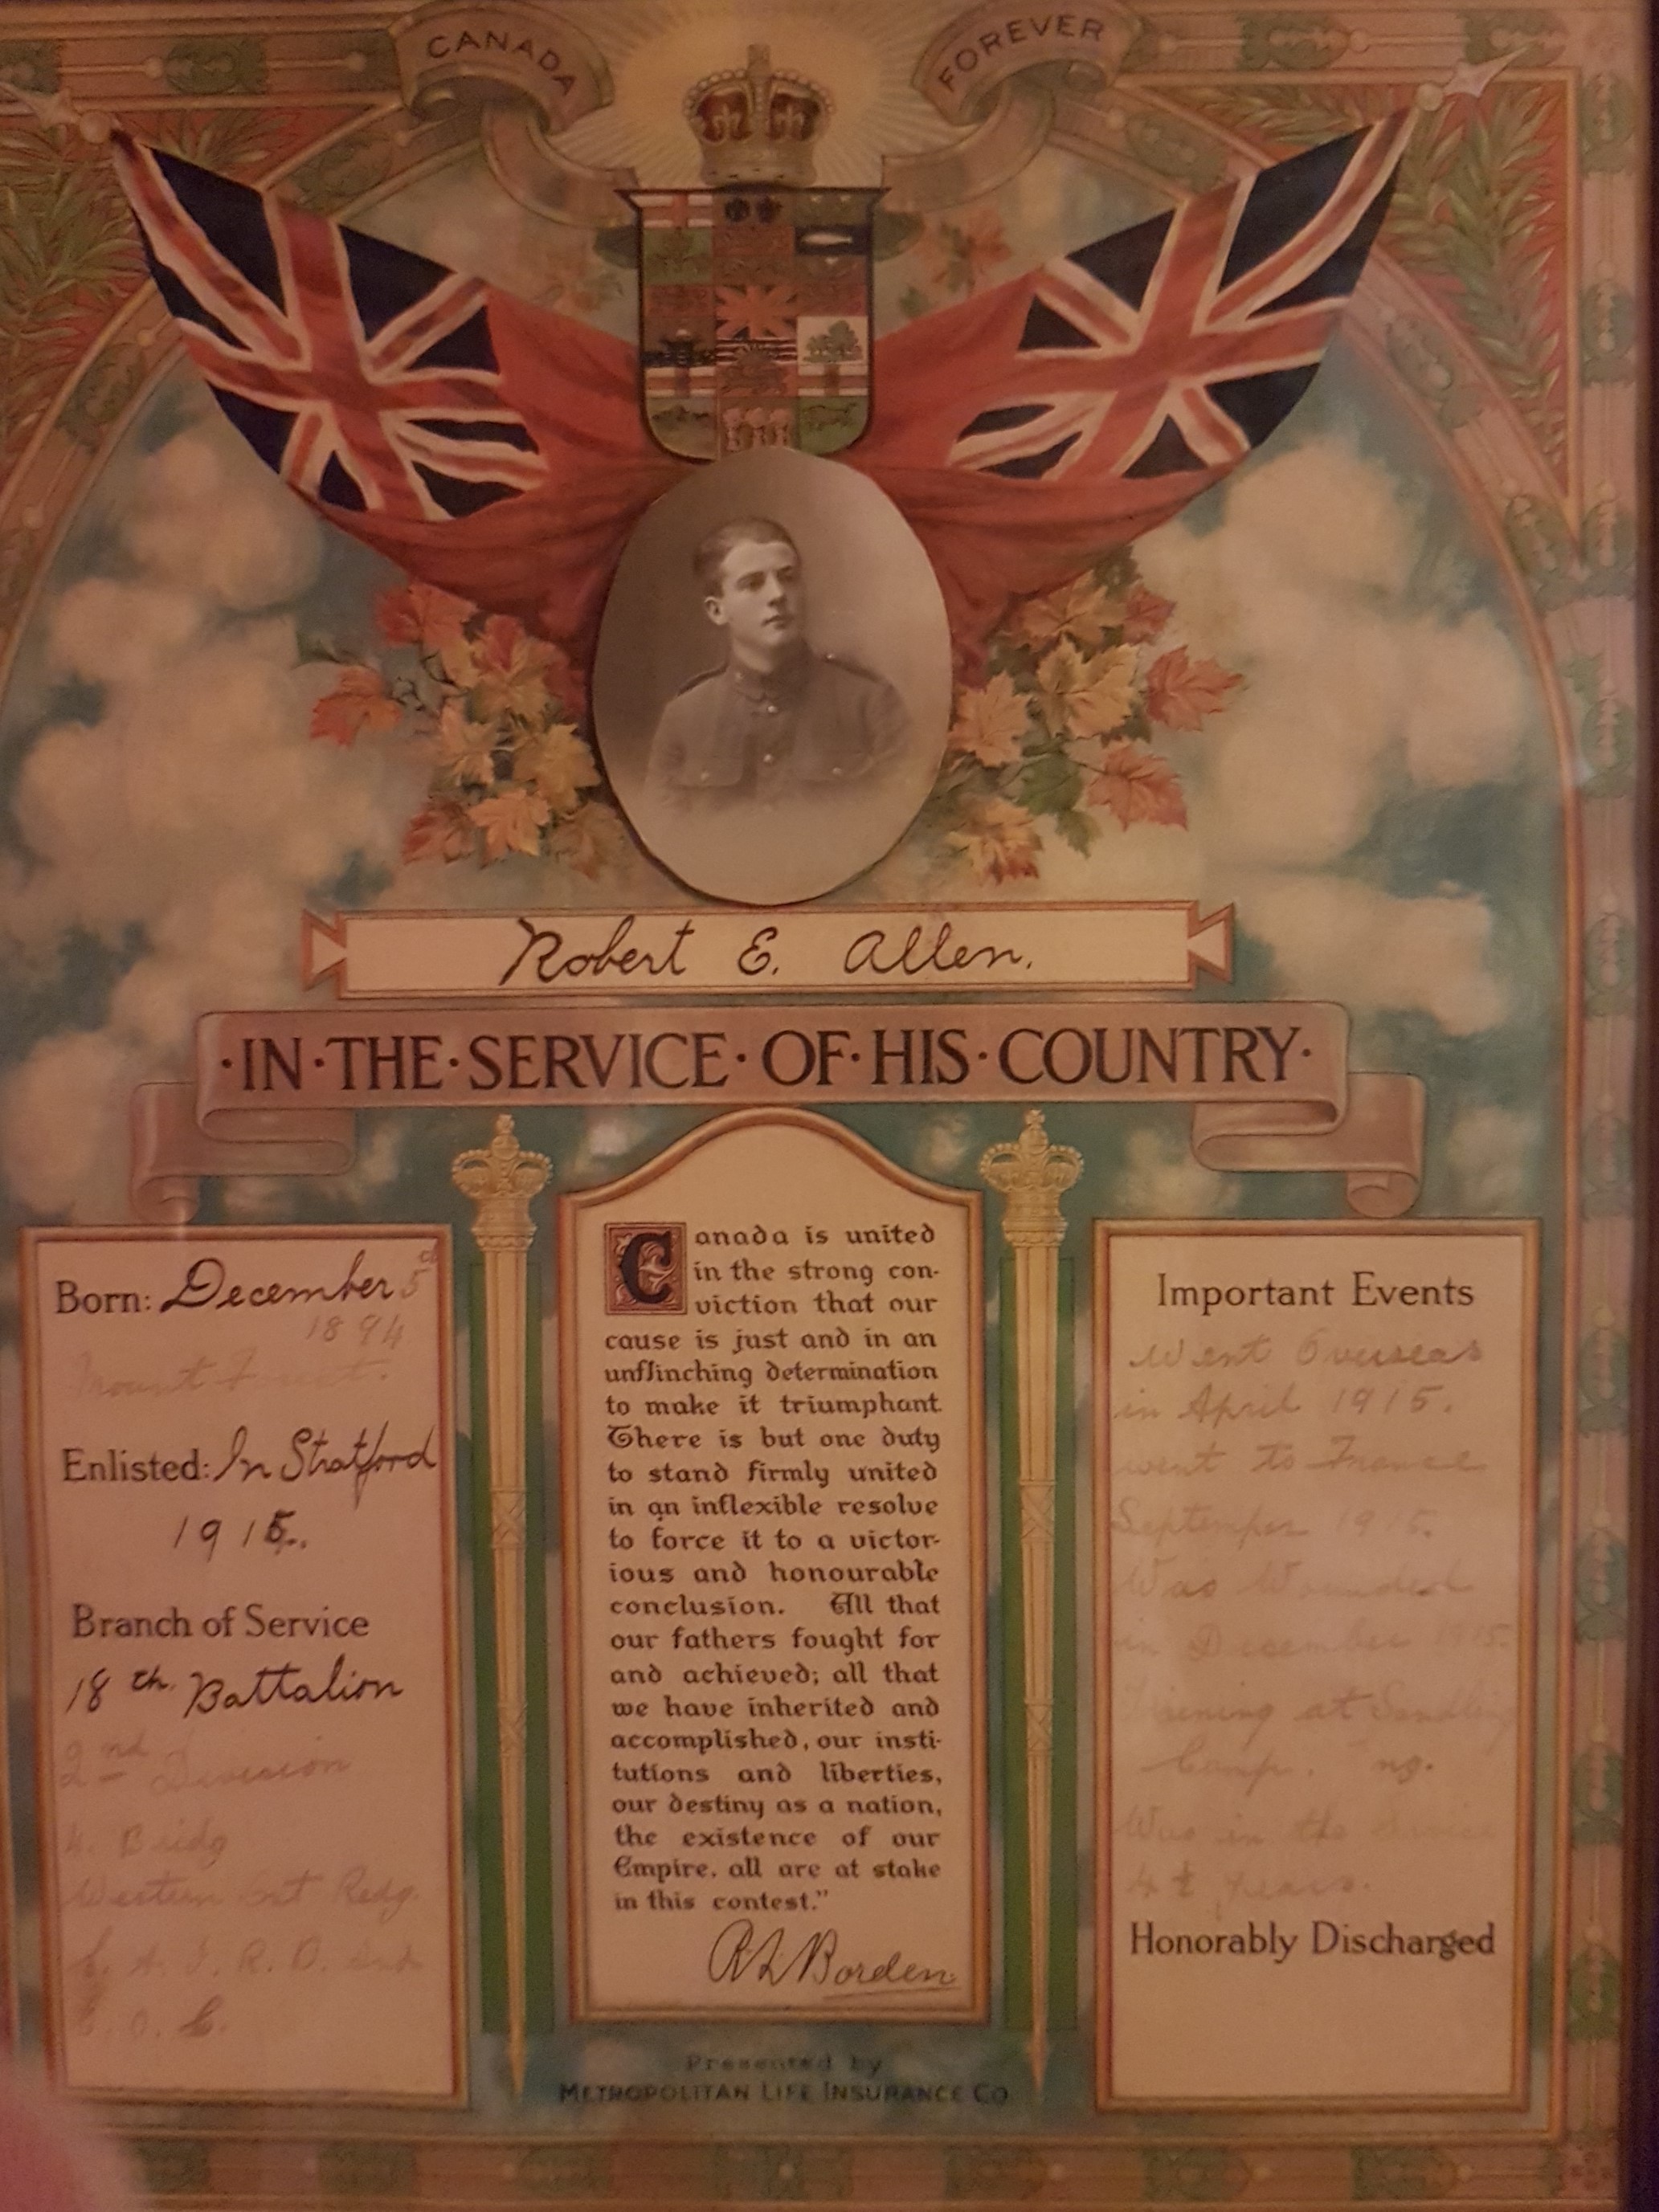 CANADA FOREVER
Robert E. Allen.
·IN·THE·SERVICE·OF·HIS·COUNTRY·
Born: December 5
1894
Mount Forest.
Enlisted: In Stratford
1915.
Branch of Service
18th. Battalion
2nd Division
4.
Western Ont
R. D.
Canada is united
in the strong con-
viction that our
cause is just and in an
unflinching determination
to make it triumphant.
There is but one duty
to stand firmly united
in an inflexible resolve
to force it to a victor-
ious and honourable
conclusion. All that
our fathers fought for
and achieved; all that
we have inherited and
accomplished, our insti-
tutions and liberties,
our destiny as a nation,
the existence of our
Empire, all are at stake
in this contest."
R L Borden
Important Events
Went Overseas
in April 1915.
went to France
September 1915.
Was Wounded
in December 1915.
at Sandling
Camp.
Was in the
4 ½ years.
Honorably Discharged
Presented by
METROPOLITAN LIFE INSURANCE CO.